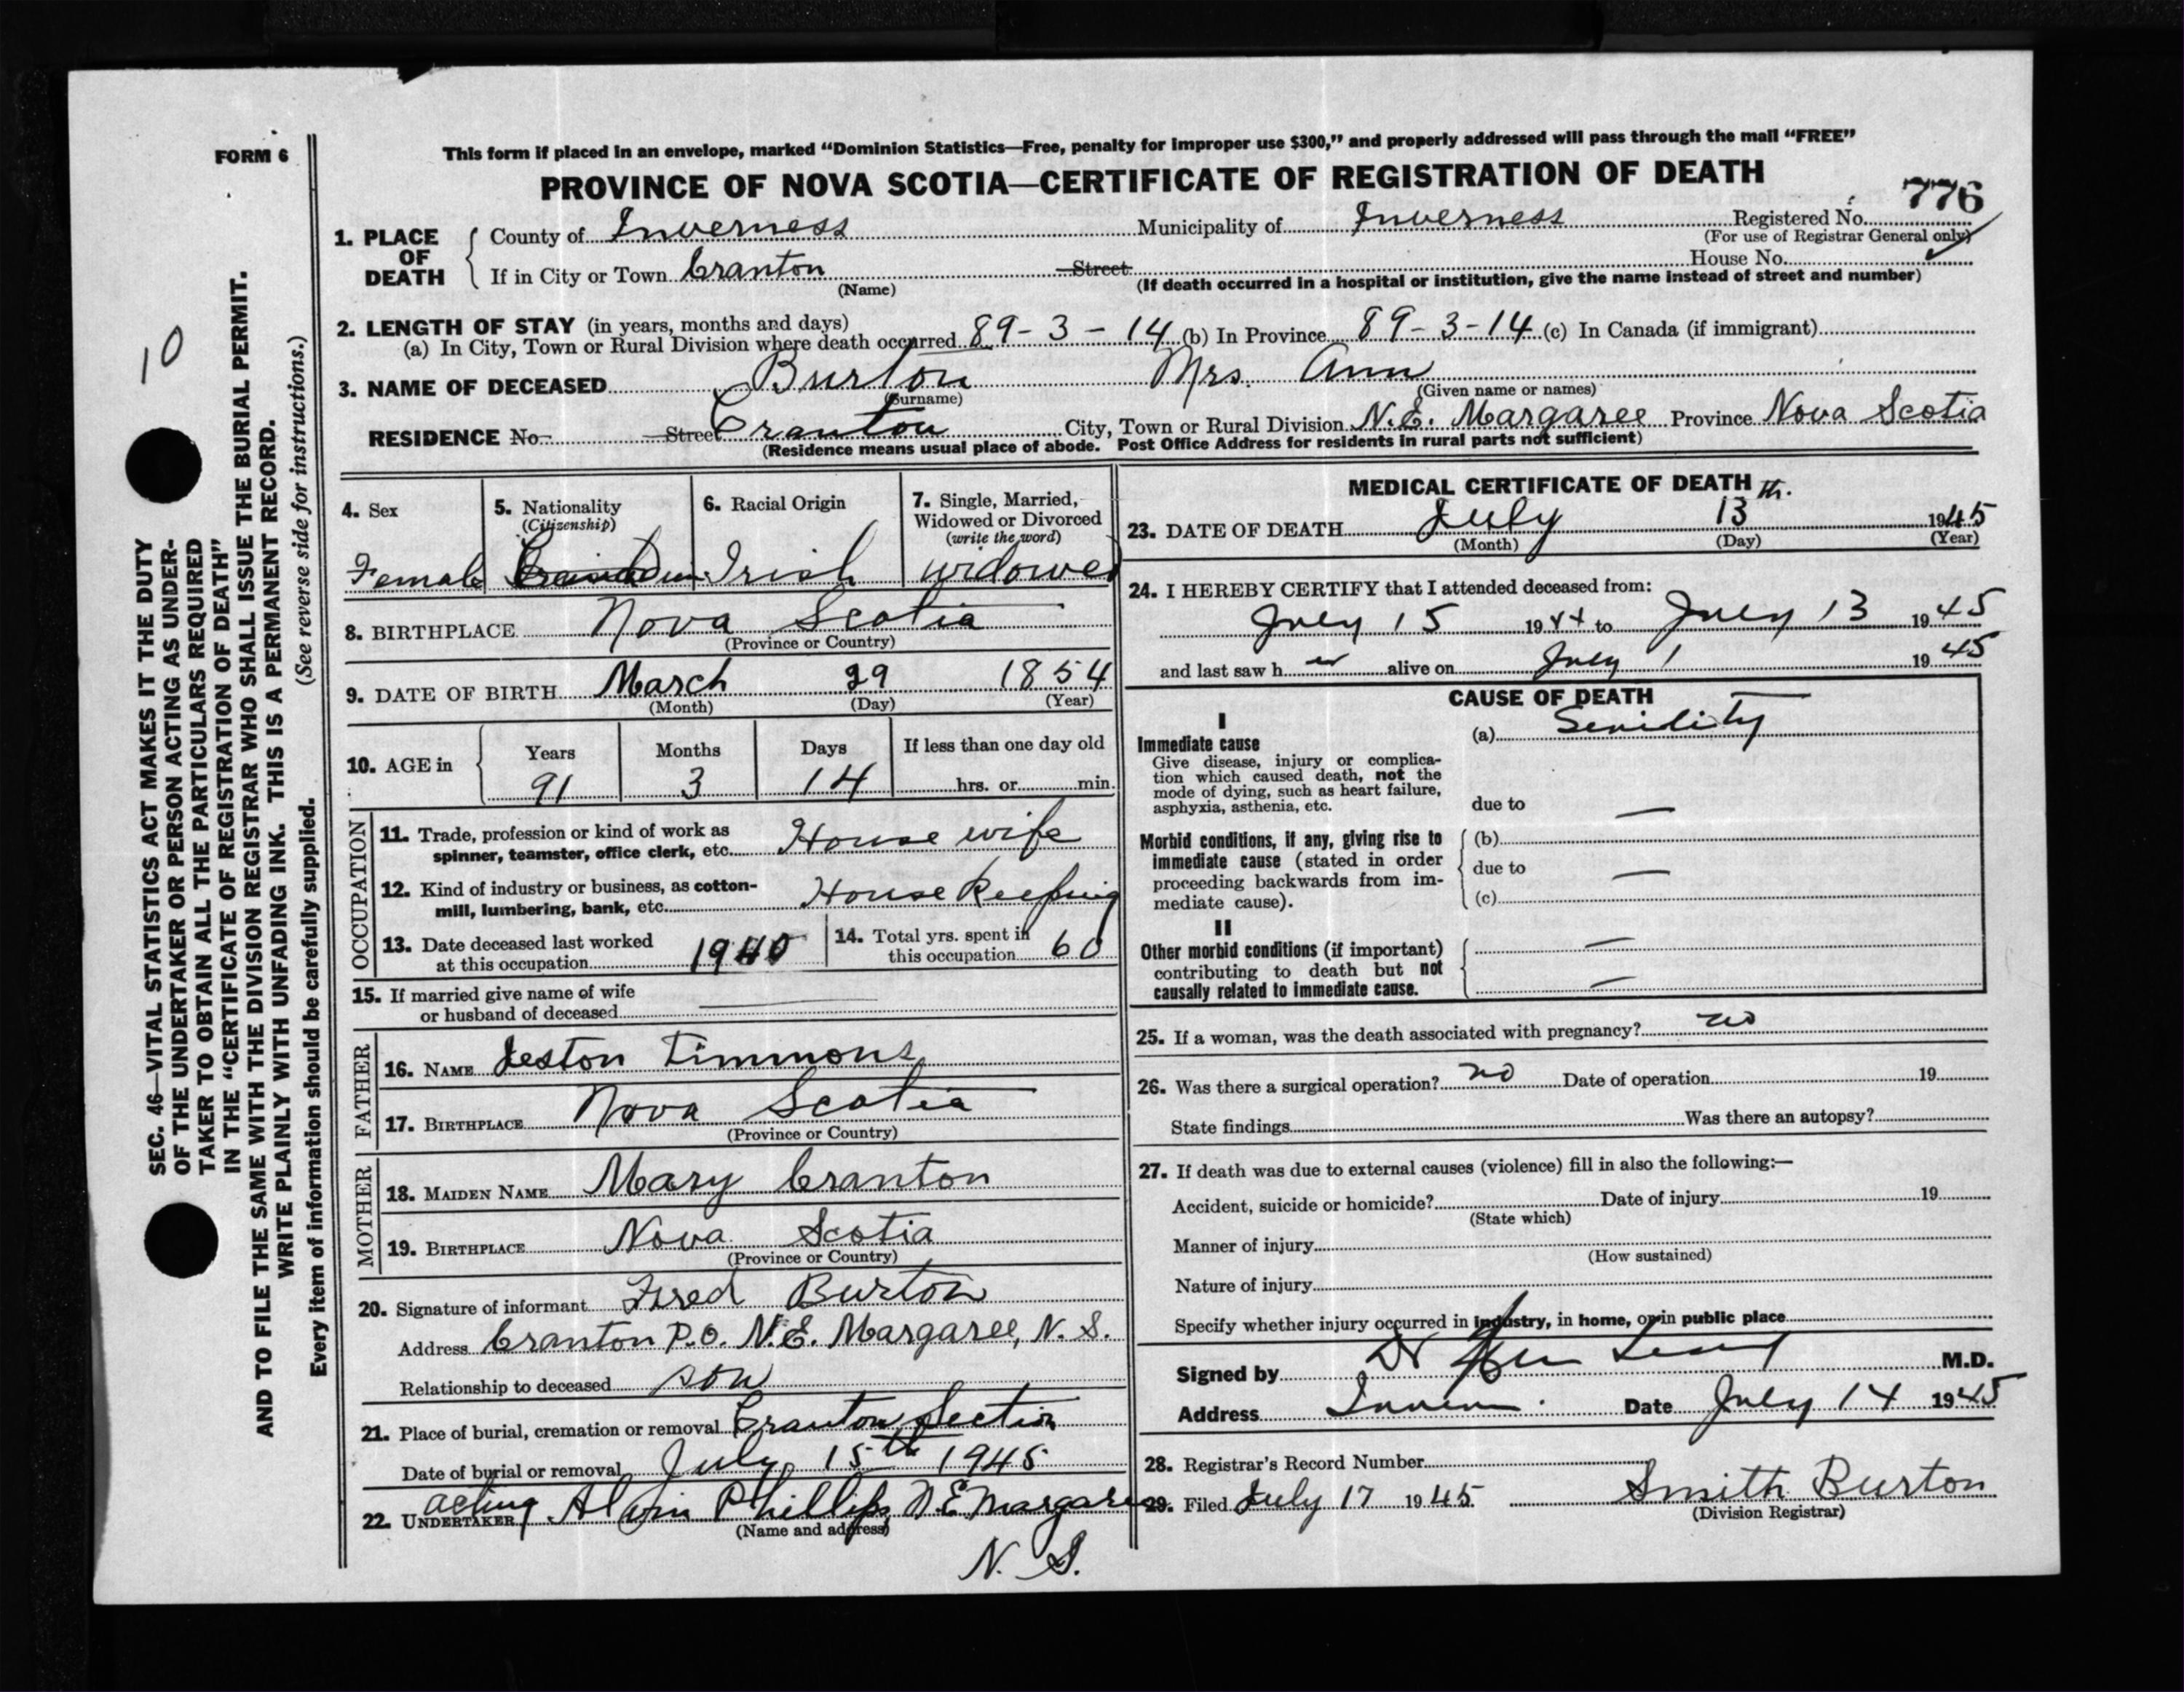 FORM 6
This form if placed in an envelope, marked “Dominion Statistics—Free, penalty for improper use $300,” and properly addressed will pass through the mail “FREE”
PROVINCE OF NOVA SCOTIA—CERTIFICATE OF REGISTRATION OF DEATH
776
1. PLACE OF DEATH
County of Inverness Municipality of Inverness Registered No.
(For use of Registrar General only)
If in City or Town Cranton Street House No.
(Name) (If death occurred in a hospital or institution, give the name instead of street and number)
2. LENGTH OF STAY (in years, months and days)
(a) In City, Town or Rural Division where death occurred 89-3-14 (b) In Province 89-3-14 (c) In Canada (if immigrant)
3. NAME OF DECEASED Burton Mrs. Ann
(Surname) (Given name or names)
RESIDENCE No. Street Cranton City, Town or Rural Division N.E. Margaree Province Nova Scotia
(Residence means usual place of abode. Post Office Address for residents in rural parts not sufficient)
4. Sex
Female
5. Nationality
(Citizenship)
6. Racial Origin
Irish
7. Single, Married,
Widowed or Divorced
(write the word)
widowed
8. BIRTHPLACE Nova Scotia
(Province or Country)
9. DATE OF BIRTH March 29 1854
(Month) (Day) (Year)
10. AGE in
Years Months Days If less than one day old
91 3 14 hrs. or min.
OCCUPATION
11. Trade, profession or kind of work as
spinner, teamster, office clerk, etc. House wife
12. Kind of industry or business, as cotton-
mill, lumbering, bank, etc. House Keeping
13. Date deceased last worked
at this occupation 1940
14. Total yrs. spent in
this occupation 60
15. If married give name of wife
or husband of deceased
FATHER
16. NAME Leston Timmons
17. BIRTHPLACE Nova Scotia
(Province or Country)
MOTHER
18. MAIDEN NAME Mary Cranton
19. BIRTHPLACE Nova Scotia
(Province or Country)
20. Signature of informant Fred Burton
Address Cranton P.O. N.E. Margaree, N.S.
Relationship to deceased son
21. Place of burial, cremation or removal Cranton Section
Date of burial or removal July 15th 1945
22. UNDERTAKER acting Alvin Phillips N.E. Margaree
(Name and address)
N. S.
MEDICAL CERTIFICATE OF DEATH
23. DATE OF DEATH July 13th. 1945
(Month) (Day) (Year)
24. I HEREBY CERTIFY that I attended deceased from:
July 15 1944 to July 13 1945
and last saw her alive on July 1 1945
CAUSE OF DEATH
I
Immediate cause
Give disease, injury or complica-
tion which caused death, not the
mode of dying, such as heart failure,
asphyxia, asthenia, etc.
(a) Senility
due to —
Morbid conditions, if any, giving rise to
immediate cause (stated in order
proceeding backwards from im-
mediate cause).
(b)
due to —
(c)
II
Other morbid conditions (if important)
contributing to death but not
causally related to immediate cause.
—
—
25. If a woman, was the death associated with pregnancy? no
26. Was there a surgical operation? no Date of operation 19
State findings Was there an autopsy?
27. If death was due to external causes (violence) fill in also the following:—
Accident, suicide or homicide? Date of injury 19
(State which)
Manner of injury
(How sustained)
Nature of injury
Specify whether injury occurred in industry, in home, or in public place
Signed by Dr M.D.
Address Date July 14 1945
28. Registrar's Record Number
29. Filed July 17 1945 Smith Burton
(Division Registrar)
10
SEC. 46—VITAL STATISTICS ACT MAKES IT THE DUTY
OF THE UNDERTAKER OR PERSON ACTING AS UNDER-
TAKER TO OBTAIN ALL THE PARTICULARS REQUIRED
IN THE “CERTIFICATE OF REGISTRATION OF DEATH”
AND TO FILE THE SAME WITH THE DIVISION REGISTRAR WHO SHALL ISSUE THE BURIAL PERMIT.
WRITE PLAINLY WITH UNFADING INK. THIS IS A PERMANENT RECORD.
Every item of information should be carefully supplied. (See reverse side for instructions.)